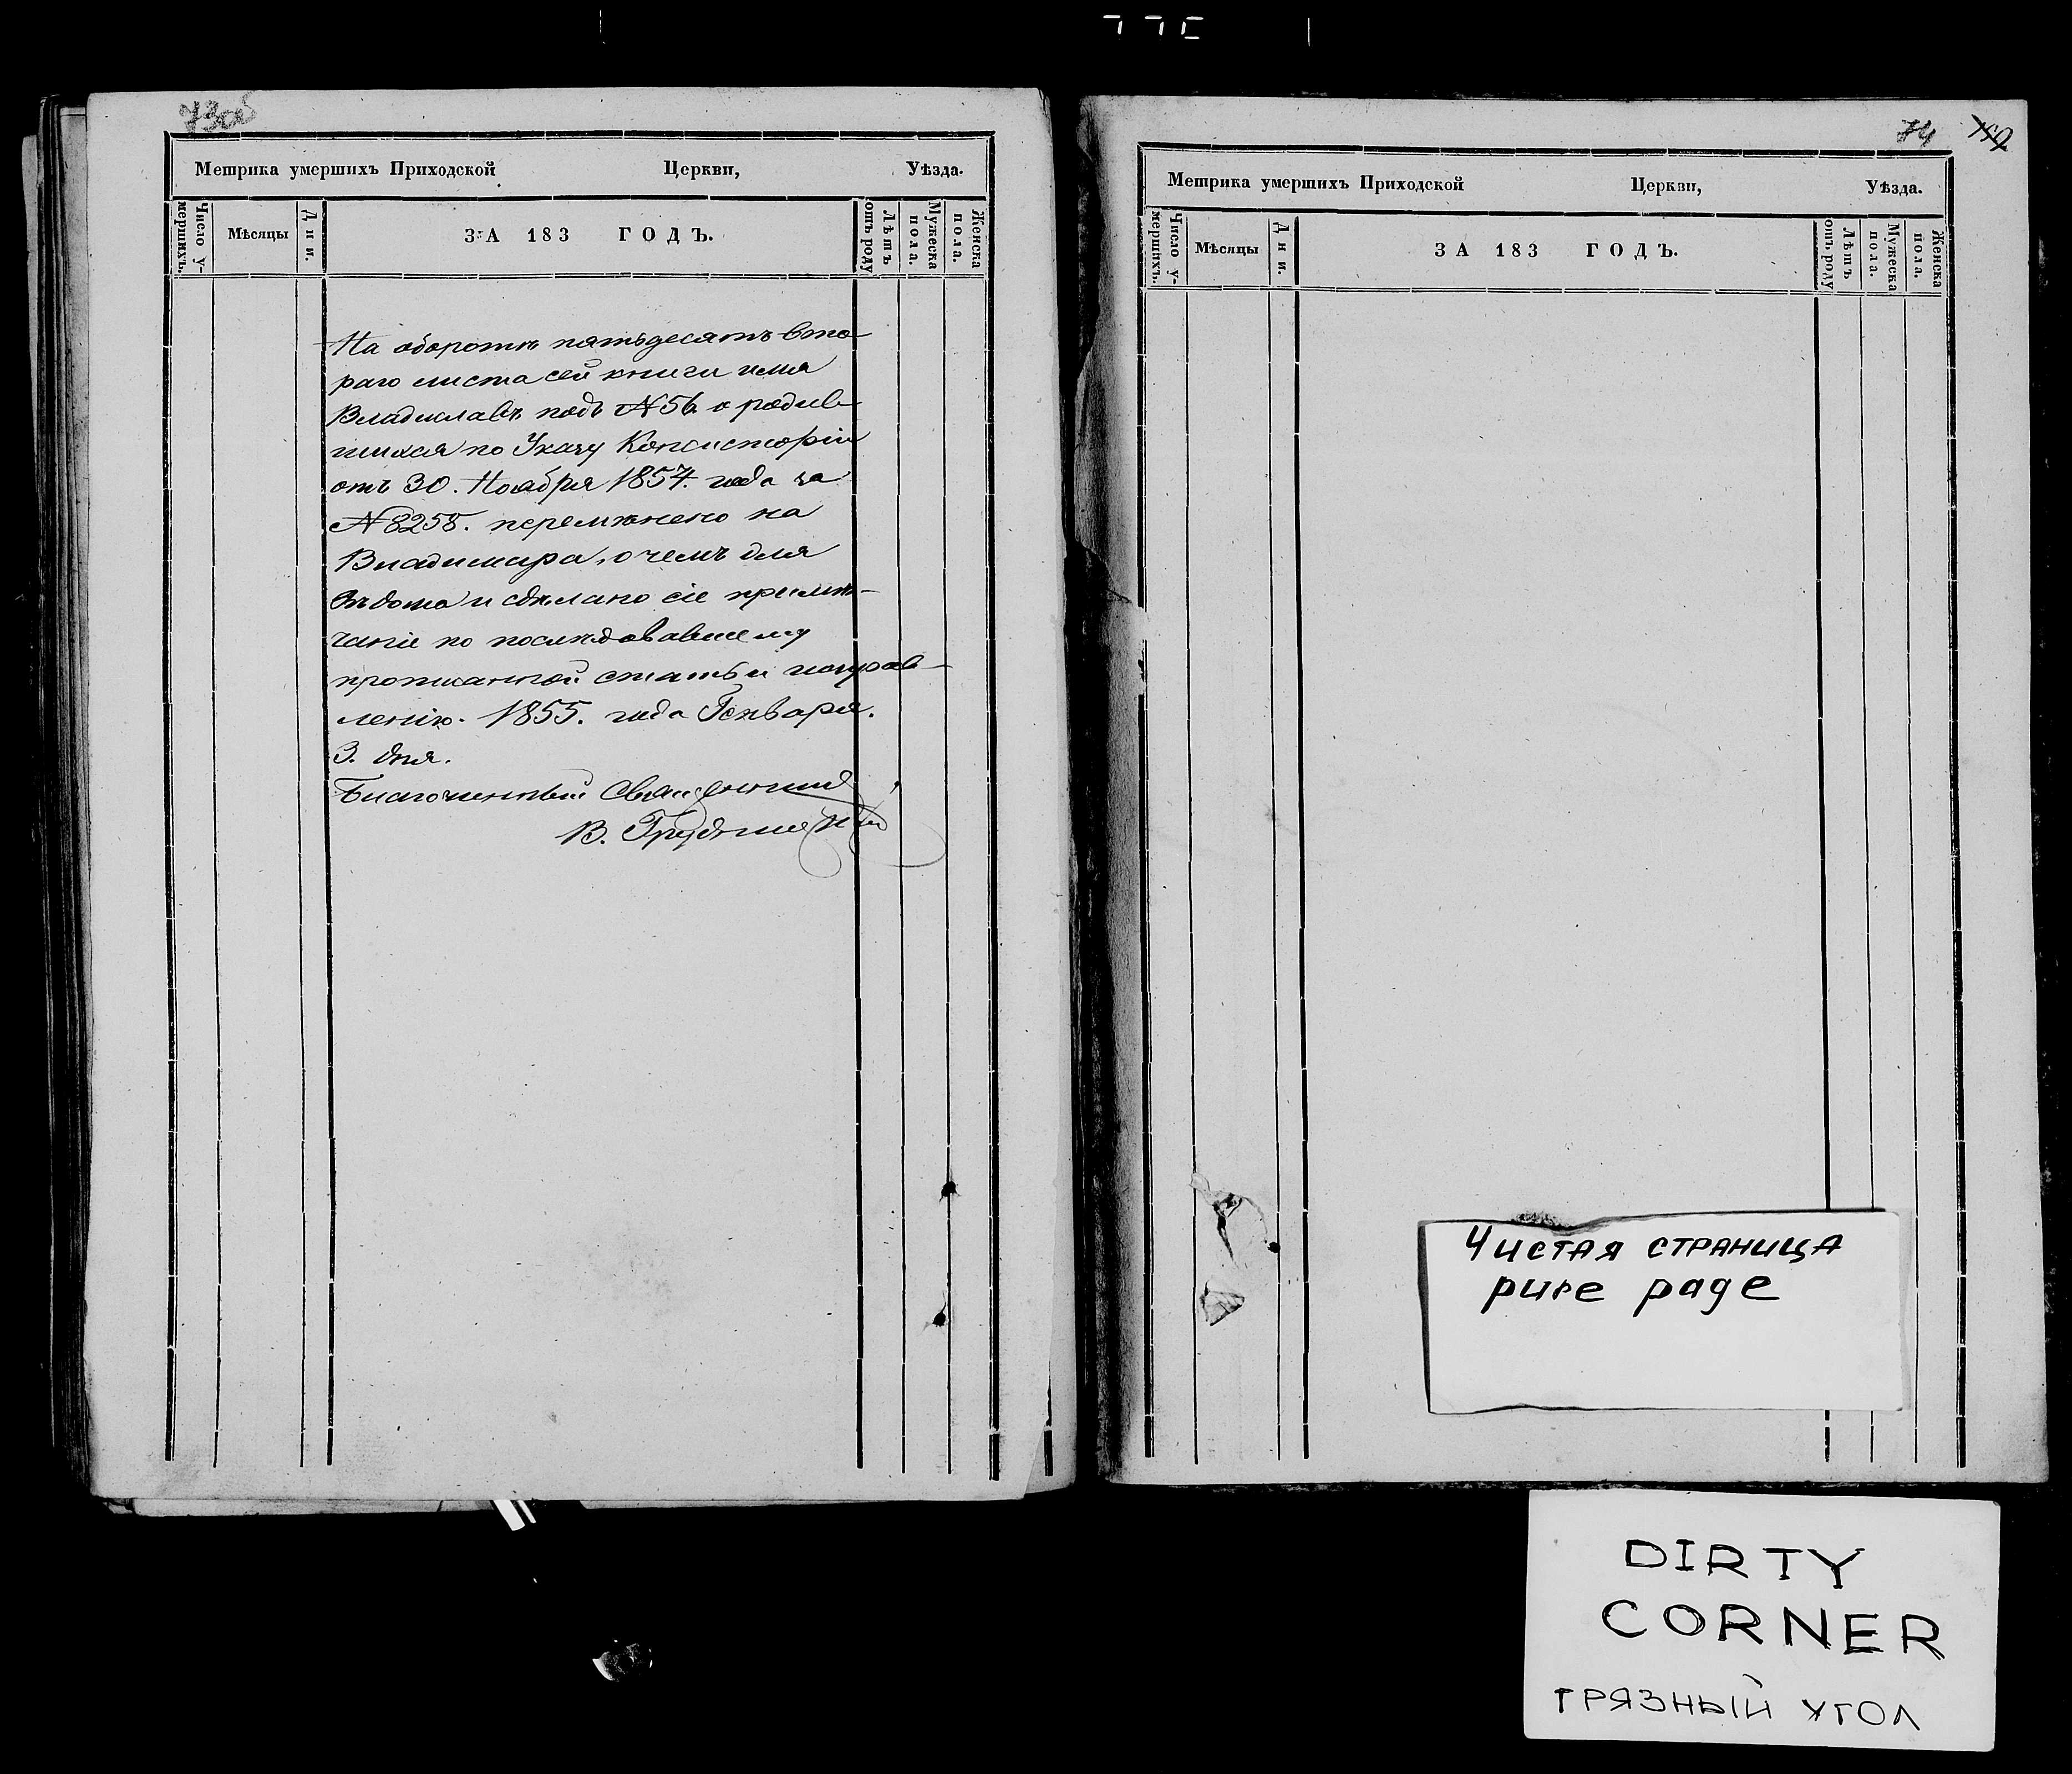 73об
Метрика умершихъ Приходской Церкви, Уѣзда.
Число умершихъ. Мѣсяцы Дни. ЗА 183 ГОДЪ. Лѣтъ отъ роду Мужеска пола. Женска пола.
На оборотѣ пятьдесятъ вто
раго листа сей книги имя
Владиславъ подъ №56 о родив
шихся по Указу Консисторіи
отъ 30. Ноября 1854. года за
№8258. перемѣнено на
Владимира, о чемъ для
вѣдома и сдѣлано сіе примѣ-
чаніе по послѣдовавшему
прописанной статьи исправ-
ленію. 1855. года Генваря.
3. дня.
Благочинный Священникъ
В.
74
Метрика умершихъ Приходской Церкви, Уѣзда.
Число умершихъ. Мѣсяцы Дни. ЗА 183 ГОДЪ. Лѣтъ отъ роду Мужеска пола. Женска пола.
Чистая страница
pure page
DIRTY
CORNER
ГРЯЗНЫЙ УГОЛ